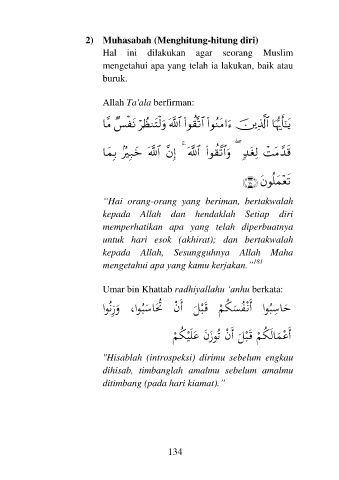 2) Muhasabah (Menghitung-hitung diri)
Hal ini dilakukan agar seorang Muslim
mengetahui apa yang telah ia lakukan, baik atau
buruk.
Allah Ta'ala berfirman:
يَـٰٓأَيُّهَا ٱلَّذِينَ ءَامَنُوا۟ ٱتَّقُوا۟ ٱللَّهَ وَلْتَنظُرْ نَفْسٌ مَّا
قَدَّمَتْ لِغَدٍ ۖ وَٱتَّقُوا۟ ٱللَّهَ ۚ إِنَّ ٱللَّهَ خَبِيرٌۢ بِمَا
تَعْمَلُونَ ﴿١٨﴾
"Hai orang-orang yang beriman, bertakwalah
kepada Allah dan hendaklah Setiap diri
memperhatikan apa yang telah diperbuatnya
untuk hari esok (akhirat); dan bertakwalah
kepada Allah, Sesungguhnya Allah Maha
mengetahui apa yang kamu kerjakan."181
Umar bin Khattab radhiyallahu 'anhu berkata:
حَاسِبُوا أَنْفُسَكُمْ قَبْلَ أَنْ تُحَاسَبُوا، وَزِنُوا
أَعْمَالَكُمْ قَبْلَ أَنْ تُوزَنَ عَلَيْكُمْ
"Hisablah (introspeksi) dirimu sebelum engkau
dihisab, timbanglah amalmu sebelum amalmu
ditimbang (pada hari kiamat)."
134